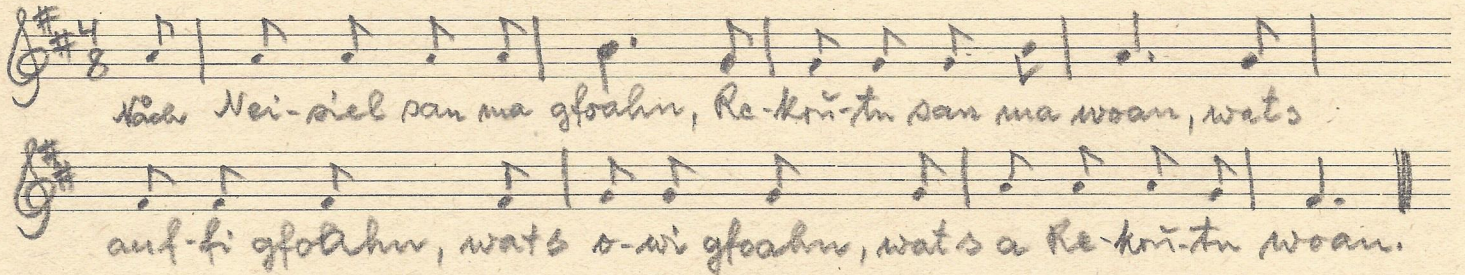 4
8
Nach Nei-siel san ma gfoahn, Re-krū-tn san ma woan, wats
auf-fi gfoahn, wats o-wi gfoahn, wats a Re-krū-tn woan.